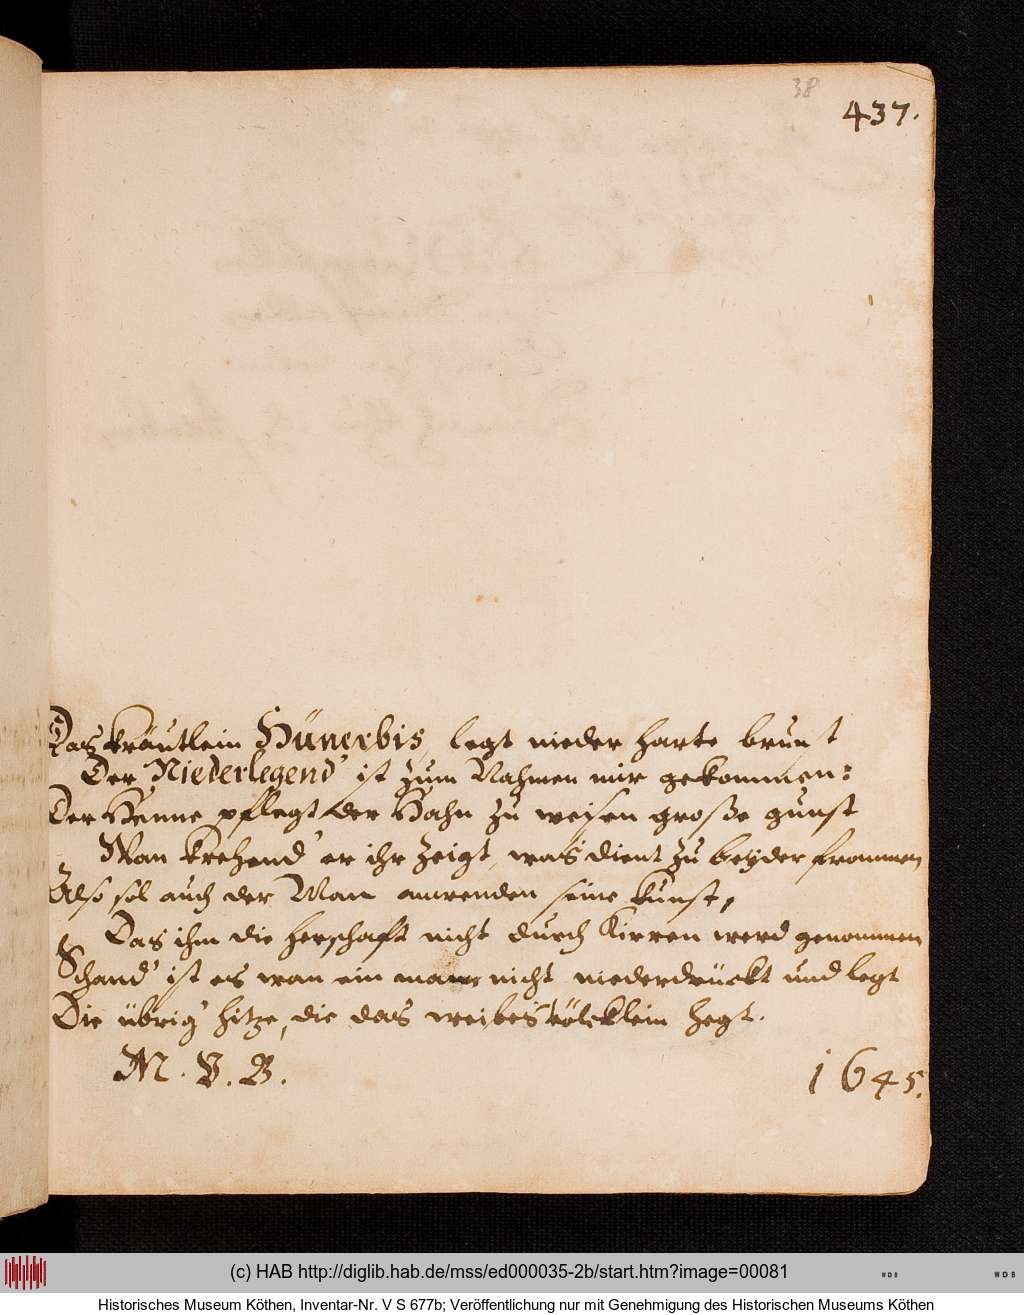 38
437.
Das kräutlein Hünerbis, legt nieder harte brunst
Der Niederlegend' ist zum Nahmen mir gekommen:
Der Henne pflegt der Hahn zu weisen große gunst
Wan krehend' er ihr zeigt, was dient zu beyder frommen
Also sol auch der Man anwenden seine kunst,
Das ihm die herschaft nicht durch Kirren werd genommen
Schand' ist es wan ein man nicht niederdrückt und legt
Die übrig' hitze, die das weibes völcklein hegt.
M. V. B.
1645.
(c) HAB http://diglib.hab.de/mss/ed000035-2b/start.htm?image=00081
WDB
WDB
Historisches Museum Köthen, Inventar-Nr. V S 677b; Veröffentlichung nur mit Genehmigung des Historischen Museums Köthen